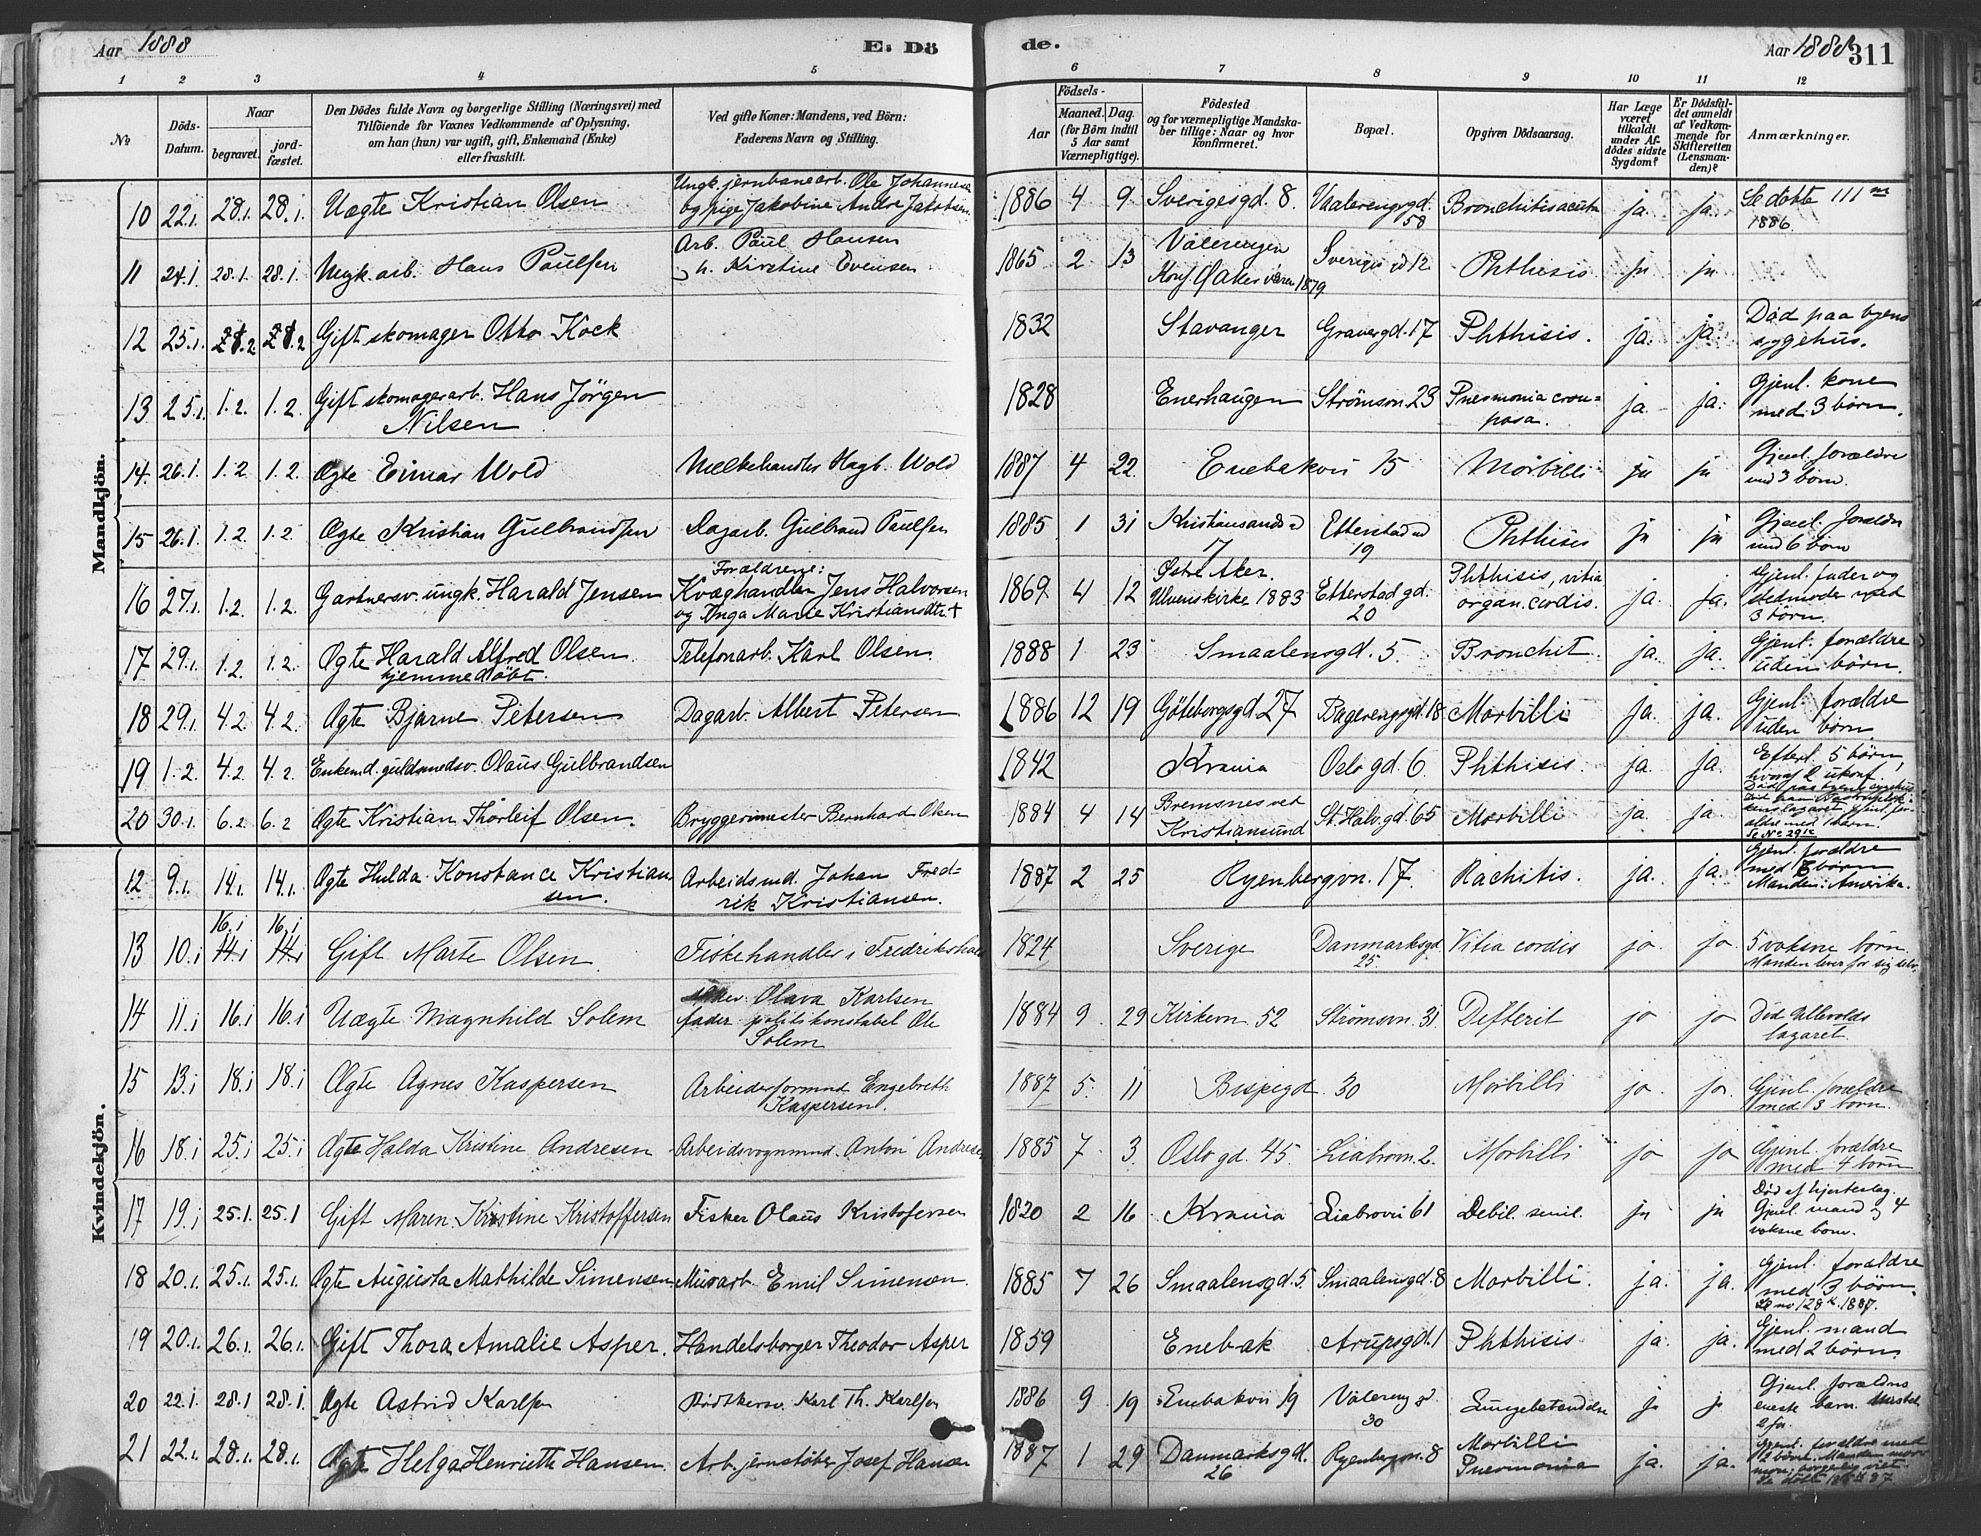 Aar 1888 E. Dö de. Aar 1888 311
1 2 3 4 5 6 7 8 9 10 11 12
№ Döds-Datum. Naar begravet. jord-fæstet. Den Dödes fulde Navn og borgerlige Stilling (Næringsvei) med Tilföiende for Voxnes Vedkommende af Oplysning, om han (hun) var ugift, gift, Enkemand (Enke) eller fraskilt. Ved gifte Koner: Mandens, ved Börn: Faderens Navn og Stilling. Födsels- Aar Maaned. Dag. (for Börn indtil 5 Aar samt Værnepligtige). Födested og for værnepligtige Mandskaber tillige: Naar og hvor konfirmeret. Bopæl. Opgiven Dödsaarsag. Har Læge været tilkaldt under Afdödes sidste Sygdom? Er Dödsfaldet anmeldt af Vedkommende for Skifteretten (Lensmanden)? Anmærkninger.
Mandkjön.
10 22.1. 28.1. 28.1. Uægte Kristian Olsen Ungk. jernbanearb. Ole Johannesen og pige Jakobine Andrea Jakobsen 1886 4 9 Sverigesgd. 8. Vaalerengsgd. 58 Bronchitis acuta ja. ja. Se døbte 111 1886.
11 24.1. 28.1. 28.1. Ungk. arb. Hans Paulsen Arb. Paul Hansen h. Kirstine Evensen 1865 2 13 Vålerengen Konf. Ø Aker våren 1879 Sverigesgd 12 Phthisis ja ja
12 25.1. 28.2 28.2 Gift skomager Otto Kock 1832 Stavanger Gravergd. 17 Phthisis. ja. ja. Død paa byens sygehus.
13 25.1. 1.2. 1.2. Gift skomagerarb. Hans Jørgen Nilsen 1828 Enerhaugen Strømsvn. 23 Pneumonia crouposa. ja. ja. Gjenl. kone med 3 børn.
14. 26.1. 1.2. 1.2. Ægte Einar Wold Melkehandler Hagb. Wold 1887 4 22. Enebakvn 15 Morbilli ja ja Gjenl. forældre med 3 børn.
15 26.1. 1.2 1.2. Ægte Kristian Gulbrandsen Dagarb. Gulbrand Paulsen 1885 1 31 Kristiansandsgd 7 Etterstadgd 19 Phthisis ja ja Gjenl. forældre med 6 børn
16 27.1. 1.2. 1.2. Gartnersv. ungk. Harald Jensen Forældrene: Kvæghandler Jens Halvorsen og Inga Marie Kristiansdtr. † 1869. 4 12 Østre Aker. Ulvenskirke 1883 Etterstad gd. 20 Phthisis, vitia organ. cordis. ja. ja. Gjenl. fader og stedmoder med 3 børn.
17 29.1. 1.2. 1.2. Ægte Harald Alfred Olsen. hjemmedøbt. Telefonarb. Karl Olsen. 1888 1 23 Smaalensgd. 5. Bronchit. ja. ja. Gjenl. forældre uden børn.
18 29.1. 4.2. 4.2. Ægte Bjarne Petersen Dagarb. Albert Petersen 1886 12 19 Göteborgsgd 27 Bagerengsgd. 18 Morbilli ja. ja. Gjenl. forældre uden børn
19 1.2. 4.2 4.2 Enkemd. guldsmedsv. Olaus Gulbrandsen 1842 Krania Oslo gd. 6. Phthisis. ja. ja. Efterl. 5 børn, hvoraf 2 ukonf.
20 30.1. 6.2 6.2 Ægte Kristian Thorleif Olsen. Bryggerimester Bernhard Olsen 1884 4 14 Bremsnes ved Kristiansund St. Halv.gd. 65 Morbilli ja. ja. Gjenl. forældre med 1 barn.
Kvindekjön.
12 9.1. 14.1. 14.1. Ægte Hulda Konstance Kristiansen. Arbeidsmd. Johan Fredrik Kristiansen. 1887 2 25 Ryenbergvn. 17. Rachitis. ja. ja. Gjenl. forældre med børn Manden i Amerika.
13 10.1 16.1 14.1 16.1 14.1 Gift Marte Olsen Fiskehandler i Fredrikshald 1824 Sverige Danmarksgd 25. Vitia cordis ja. ja. 5 voksne børn. Manden lever for sig selv.
14 11.1 16.1 16.1 Uægte Magnhild Solem Olava Karlsen fader politikonstabel Ole Solem 1884 9 29 Kirkevn 52 Strømsvn. 31 Defterit ja ja Død Ullevolds lazaret.
15 13.1 18.1 18.1 Ægte Agnes Kaspersen Arbeiderformnd Engebreth Kaspersen. 1887 5. 11 Bispegd. 30 Morbilli ja. ja. Gjenl. forældre med 3 børn.
16 18.1 25.1 25.1 Ægte Halda Kristine Andresen Arbeidsvognmnd. Anton Andresen 1885 7 3. Oslo gd. 45. Liabrovn. 2. Morbilli ja ja Gjenl. forældre med 4 børn
17 19.1 25.1. 25.1 Gift Maren Kristine Kristoffersen Fisker Olaus Kristofersen 1820 2 16 Krania Liabrovn 61 Debil. senil. ja ja Død af hjerteslag. Gjenl. mand og 4 voksne børn.
18 20.1. 25.1. 25.1. Ægte Augusta Mathilde Simensen Murarb. Emil Simensen. 1885 7 26 Smaalensgd. 5 Smaalensgd. 8 Morbilli. ja. ja. Gjenl. forældre med 3 børn. Se no 128 1887.
19 20.1. 26.1. 26.1. Gift Thora Amalie Asper. Handelsborger Theodor Asper 1859 Enebak Arupsgd. 1 Phthisis ja. ja. Gjenl. mand med 2 børn.
20 22.1. 28.1 28.1. Ægte Astrid Karlsen Bødkersv. Karl Th. Karlsen 1886 9 19 Enebakvn 19 Vålereng gd 30 Lungebetændelse ja ja Gjenl. forældres eneste barn.
21 22.1. 28.1. 28.1. Ægte Helga Henriette Hansen. Arb. jernstøber Josef Hansen 1887 1 29 Danmarksgd. 26 Ryenbergvn. 8 Morbilli Pneumonia ja. ja. Gjenl. forældre med 2 børn. Manden mormon;